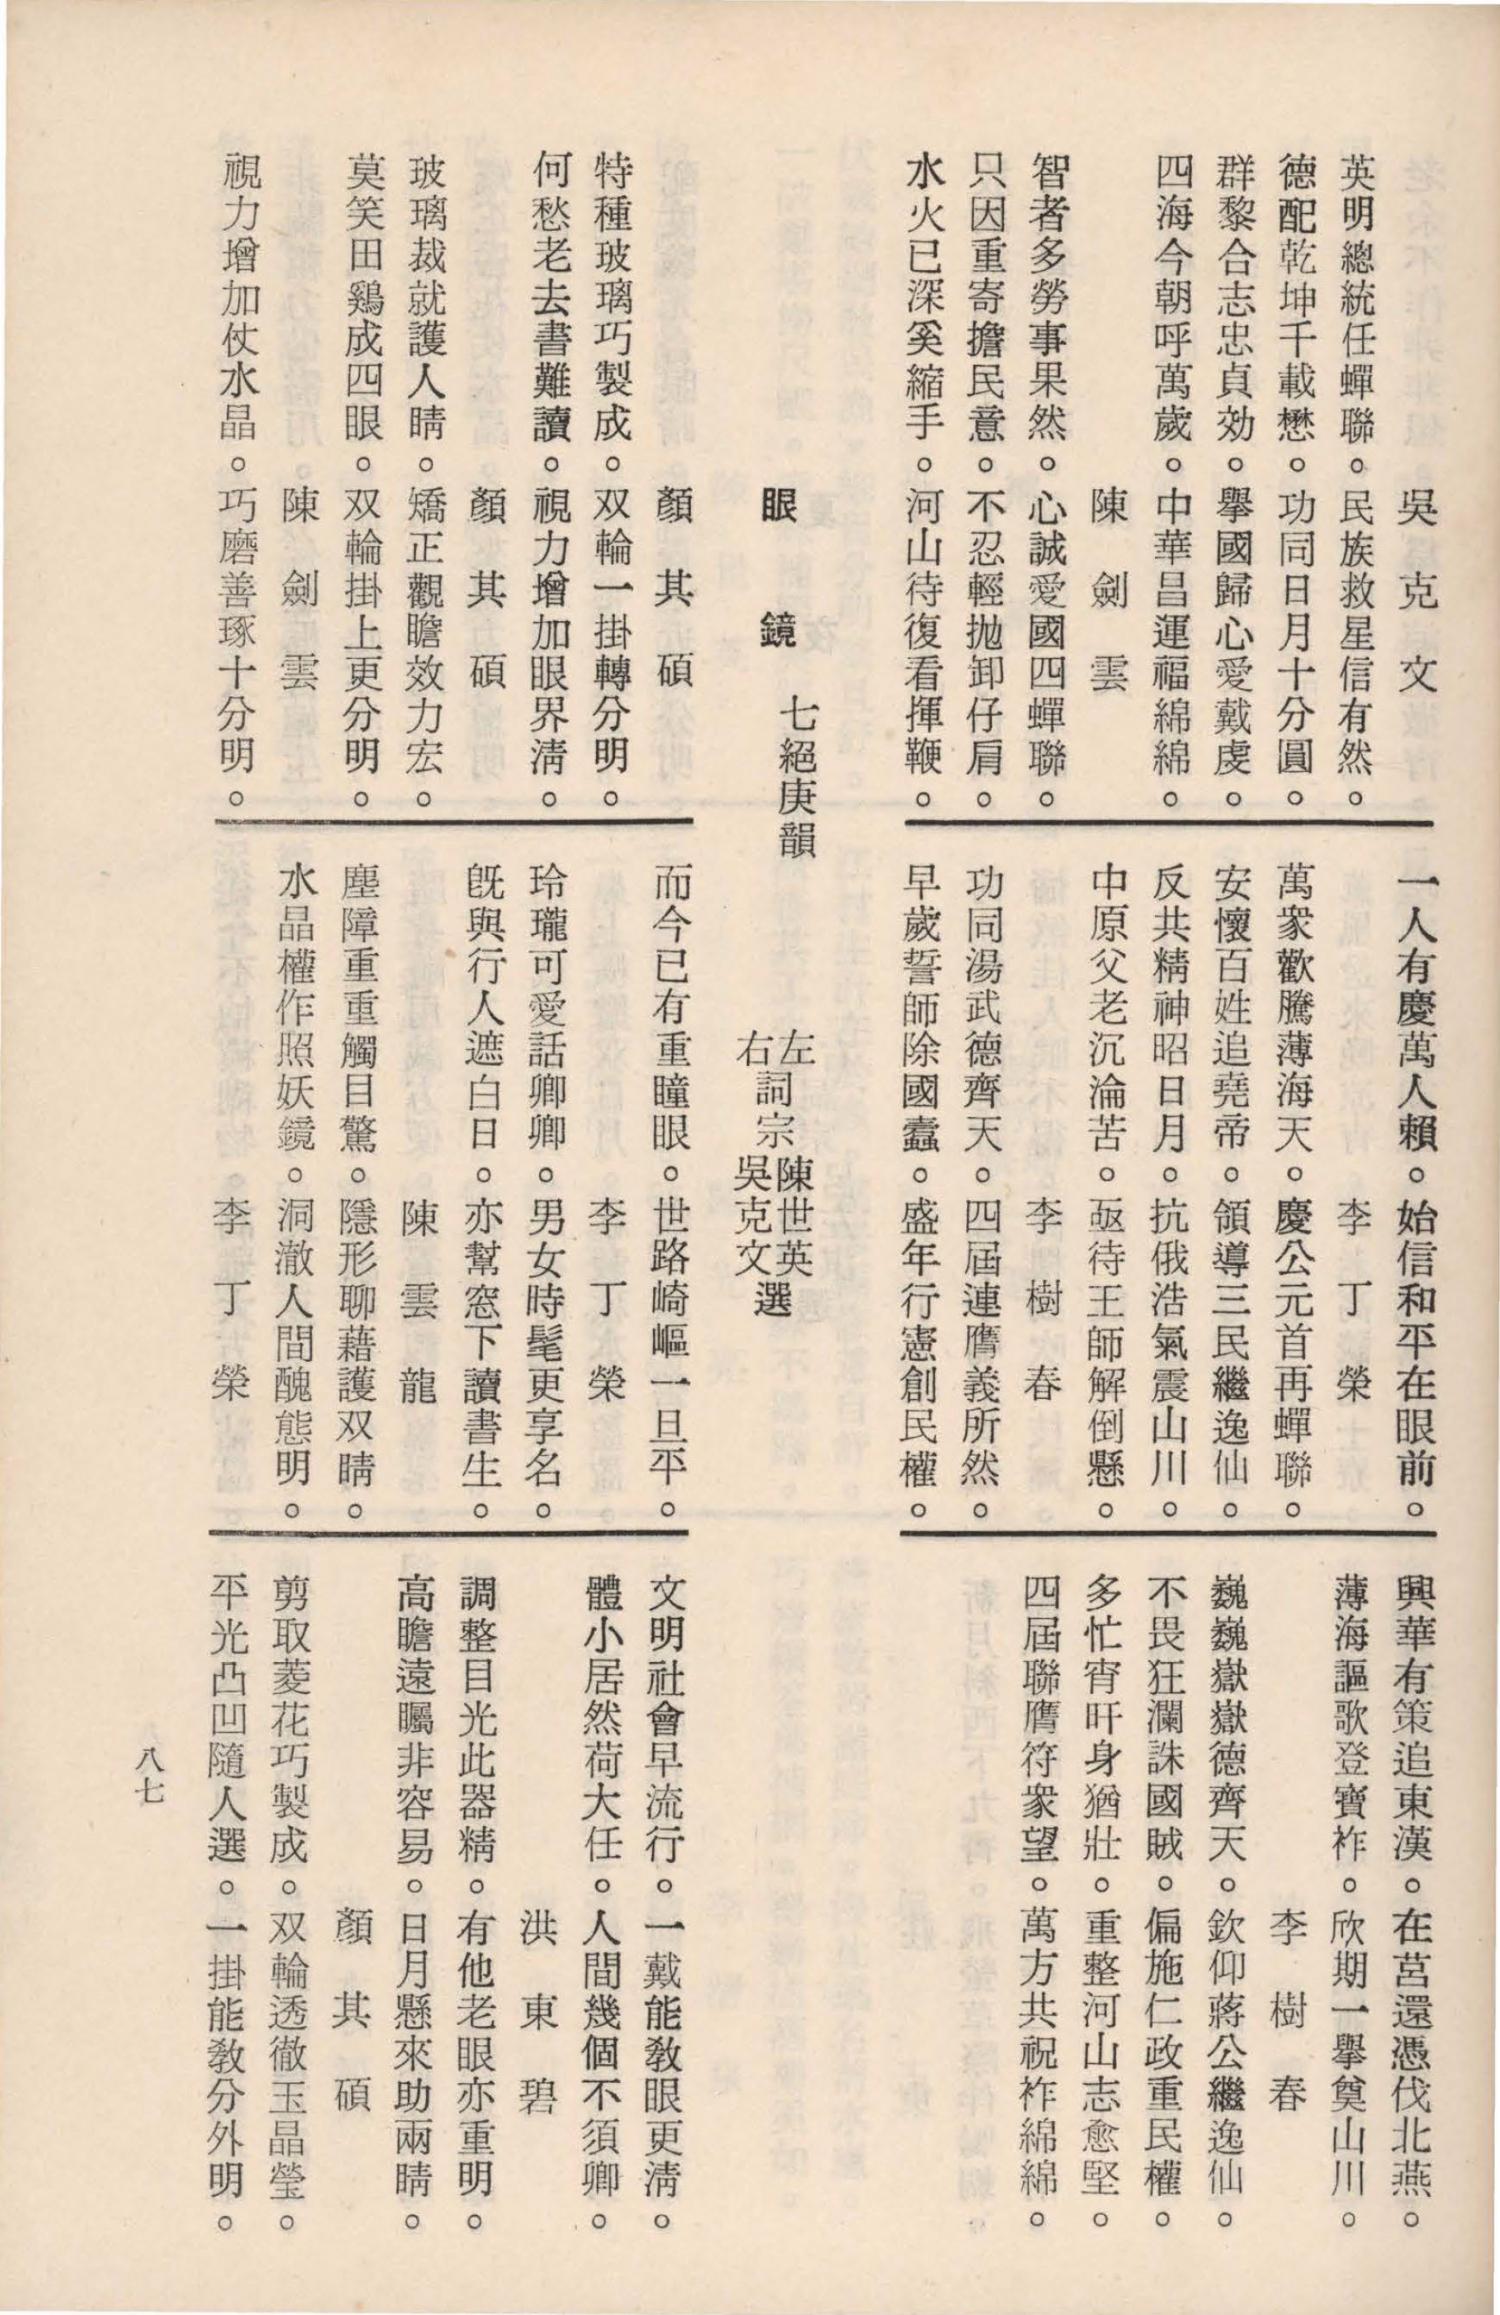 吳克文
英明總統任蟬聯。民族救星信有然。
德配乾坤千載懋。功同日月十分圓。
群黎合志忠貞効。舉國歸心愛戴虔。
四海今朝呼萬歲。中華昌運福綿綿。
陳劍雲
智者多勞事果然。心誠愛國四蟬聯。
只因重寄擔民意。不忍輕拋卸仔肩。
水火已深奚縮手。河山待復看揮鞭。
一人有慶萬人賴。始信和平在眼前。
李丁榮
萬衆歡騰薄海天。慶公元首再蟬聯。
安懷百姓追堯帝。領導三民繼逸仙。
反共精神昭日月。抗俄浩氣震山川。
中原父老沉淪苦。亟待王師解倒懸。
李樹春
功同湯武德齊天。四屆連膺義所然。
早歲誓師除國蠹。盛年行憲創民權。
興華有策追東漢。在莒還憑伐北燕。
薄海謳歌登寶祚。欣期一舉奠山川。
李樹春
巍巍嶽嶽德齊天。欽仰蔣公繼逸仙。
不畏狂瀾誅國賊。偏施仁政重民權。
多忙宵旰身猶壯。重整河山志愈堅。
四屆聯膺符衆望。萬方共祝祚綿綿。
眼鏡　七絕庚韻
左詞宗陳世英選
右詞宗吳克文選
顏其碩
特種玻璃巧製成。双輪一掛轉分明。
何愁老去書難讀。視力增加眼界清。
顏其碩
玻璃裁就護人睛。矯正觀瞻效力宏。
莫笑田鷄成四眼。双輪掛上更分明。
陳劍雲
視力增加仗水晶。巧磨善琢十分明。
而今已有重瞳眼。世路崎嶇一旦平。
李丁榮
玲瓏可愛話卿卿。男女時髦更享名。
旣與行人遮白日。亦幫窓下讀書生。
陳雲龍
塵障重重觸目驚。隱形聊藉護双睛。
水晶權作照妖鏡。洞澈人間醜態明。
李丁榮
文明社會早流行。一戴能敎眼更清。
體小居然荷大任。人間幾個不須卿。
洪東碧
調整目光此器精。有他老眼亦重明。
高瞻遠矚非容易。日月懸來助兩睛。
顏其碩
剪取菱花巧製成。双輪透徹玉晶瑩。
平光凸凹隨人選。一掛能敎分外明。
八七